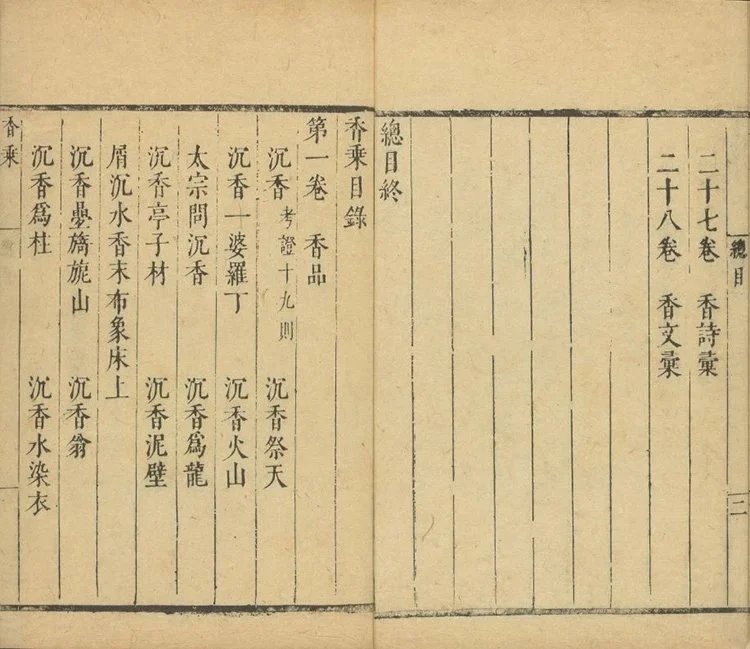 總目
三
二十七卷 香詩彙
二十八卷 香文彙
總目終
香乘目錄
第一卷 香品
沉香 考證十九則 沉香祭天
沉香一婆羅丁 沉香火山
太宗問沉香 沉香爲龍
沉香亭子材 沉香泥壁
屑沉水香末布象床上
沉香疊旖旎山 沉香翁
沉香爲柱 沉香水染衣
香乘